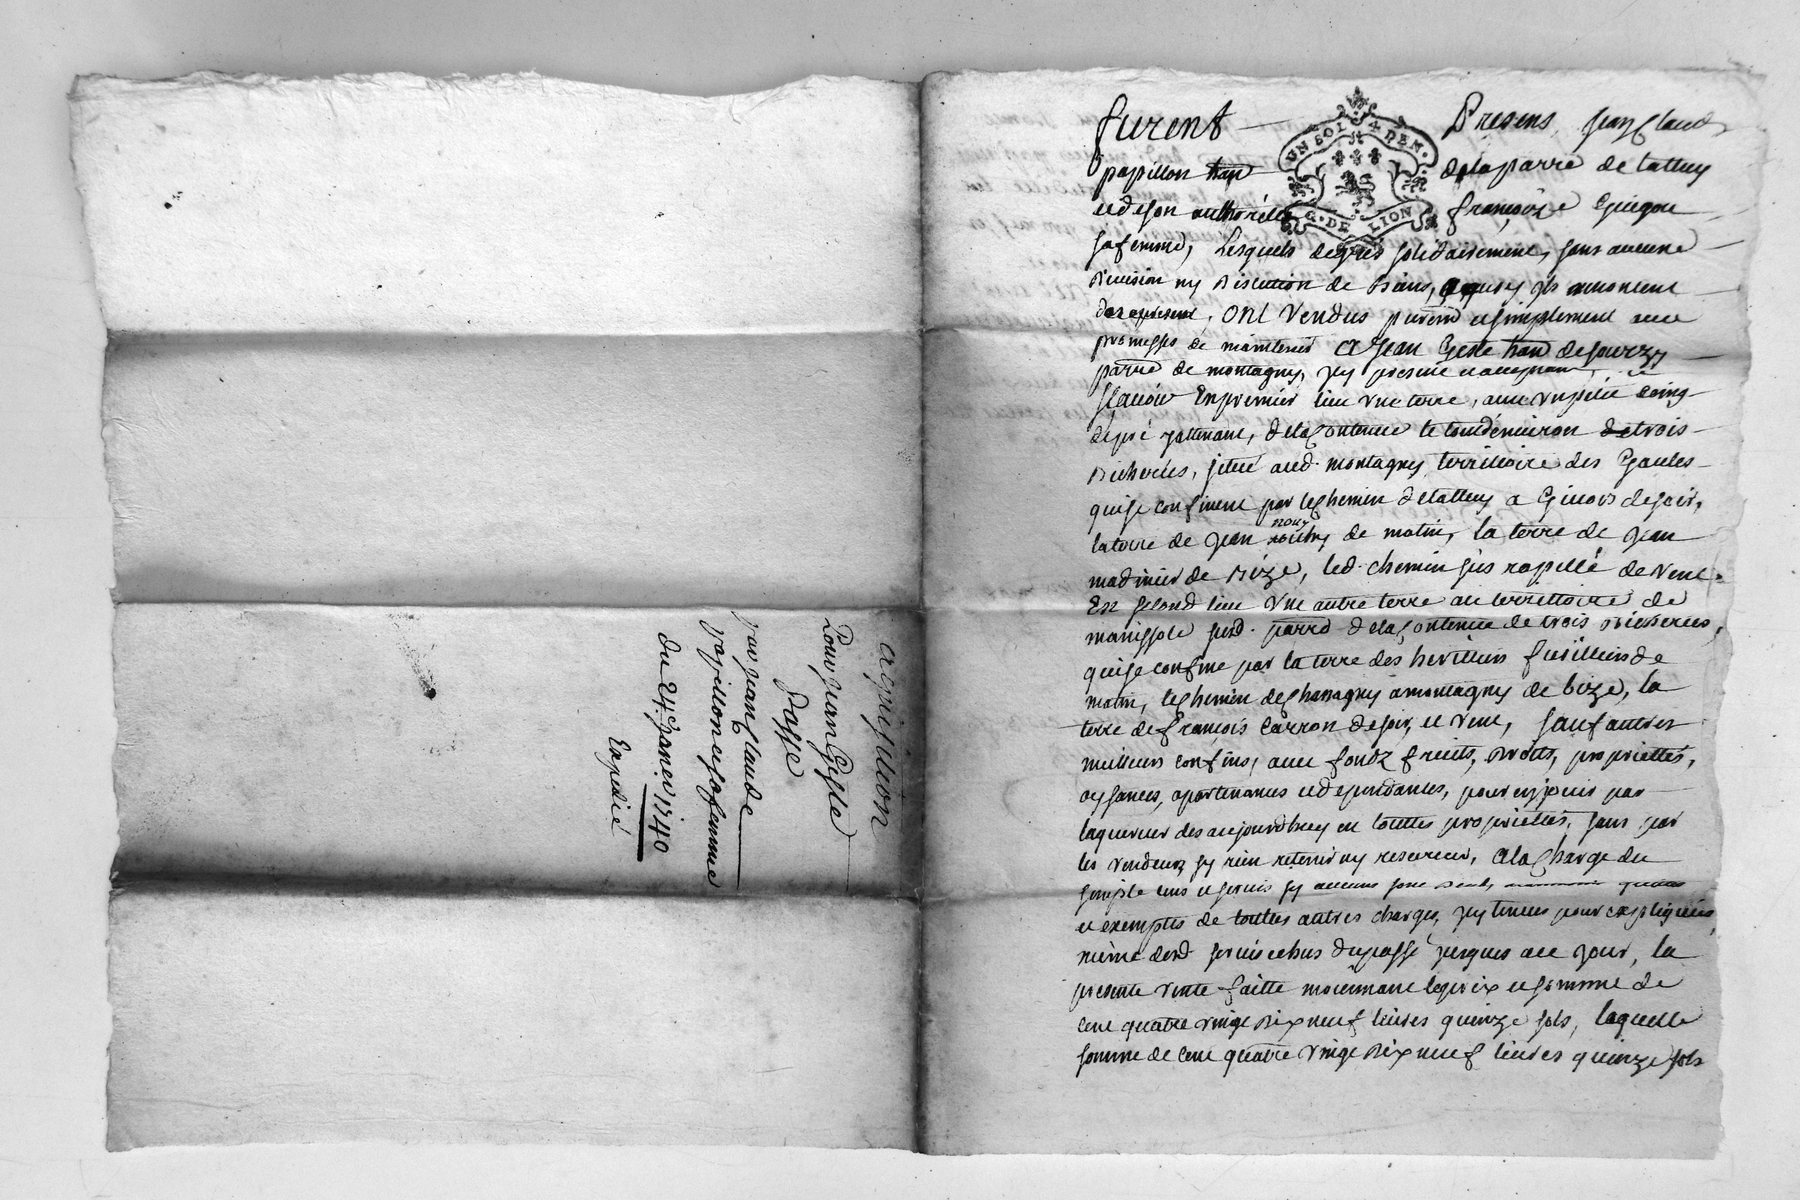 acquisition
Pour jean Geste
Passé
par jean Claude
papillon et sa femme
du 24e janer 1740
Expedié
furent Presens, jean Claude
UN SOL 4 DEN.
G. DE LION
papillon hant de la parre de talluy
et de son authorité françoize Guigou
sa femme, Lesquels de gres solidairement, sans aucune
division ny discution de biens, a quoy ils renoncent
des apresent, ont Vendus purem et simplement avec
promesses de maintenir a Jean Geste hant de sourzy
parre de montagny, icy present et acceptant,
scavoir En premier lieu une terre, avec un petit coing
de pré y attenant, de la Contenue le tout d'environ de trois
bicherées, situé aud. montagny territoire des Gaules
qui se confinent par le Chemin de talluy a Givors de soir,
la terre de jean de matin, la terre de jean
madinier de bize, led. chemin sus rapellé de vent.
En second lieu Une autre terre au territtoire de
manissole susd. parre de la Contenue de trois bicherées,
qui se confine par la terre des heritiers de
matin, le Chemin de Chassagny a montagny de bize, la
terre de françois Carron de soir, et vent, sauf autres
meilleurs confins, avec fondz fruits, droits, proprietés,
aysances, apartenances et dependantes, pour en jouir par
l'aquereur des aujourdhuy en touttes proprietés, sans par
les vendeurs sy rien retenir ny reserver, a la Charge du
simple cens et servis sy aucuns sont deub,
et exempts de touttes autres charges, icy tenues pour expliquées,
même desd servis echus du passé jusques a ce jour, la
presente vente faitte moiennant le prix et somme de
cent quatre vingt dix neuf livres quinze sols, laquelle
somme de cent quatre vingt dix neuf livres quinze sols